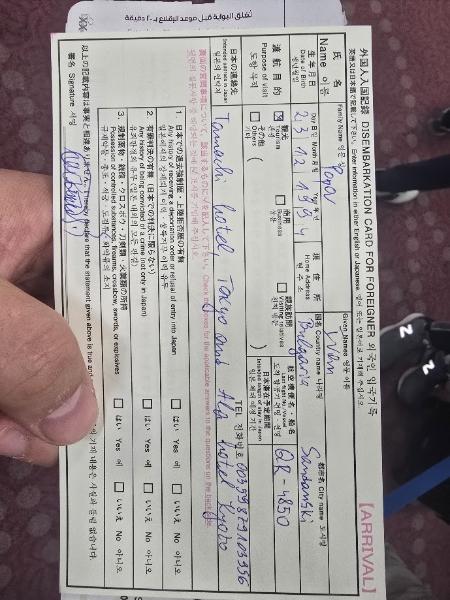 تغلق البوابة قبل موعد الإقلاع بـ ٢٠ دقيقة
外国人入国記録 DISEMBARKATION CARD FOR FOREIGNER 외국인 입국기록 [ARRIVAL]
英語又は日本語で記載して下さい。 Enter information in either English or Japanese. 영어 또는 일본어로 기재해 주십시오.
氏 名 Name 이름
Family Name 영문 성 Popov
Given Names 영문 이름 Ivan
生年月日 Date of Birth 생년월일
Day 日 일 Month 月 월 Year 年 년
23 12 1994
現住所 Home Address 현주소
国名 Country name 나라명 Bulgaria
都市名 City name 도시명 Sandanski
渡航目的 Purpose of visit 도항 목적
☒ 観光 Tourism 관광
☐ 商用 Business 상용
☐ 親族訪問 Visiting relatives 친척 방문
☐ その他 Others 기타 ( )
航空機便名・船名 Last flight No./Vessel 도착 항공기 편명・선명
QR-4850
日本滞在予定期間 Intended length of stay in Japan 일본 체재 예정 기간
日本の連絡先 Intended address in Japan 일본의 연락처
Tamachi hotel, Tokyo and Alfa hotel Kyoto
TEL 전화번호 00359879103956
裏面の質問事項について、該当するものに✓を記入して下さい。 Check the boxes for the applicable answers to the questions on the back side.
1. 日本での退去強制歴・上陸拒否歴の有無
Any history of receiving a deportation order or refusal of entry into Japan
일본에서의 강제퇴거 이력・상륙거부 이력 유무
☐ はい Yes 예 ☐ いいえ No 아니오
2. 有罪判決の有無（日本での判決に限らない）
Any history of being convicted of a crime (not only in Japan)
유죄판결의 유무 (일본 내외의 모든 판결)
☐ はい Yes 예 ☐ いいえ No 아니오
3. 規制薬物・銃砲・クロスボウ・刀剣類・火薬類の所持
Possession of controlled substances, firearms, crossbow, swords, or explosives
규제약물・총포・석궁・도검류・화약류의 소지
☐ はい Yes 예 ☐ いいえ No 아니오
以上の記載内容は事実と相違ありません。 I hereby declare that the statement given above is true and
기재 내용은 사실과 틀림 없습니다.
署名 Signature 서명